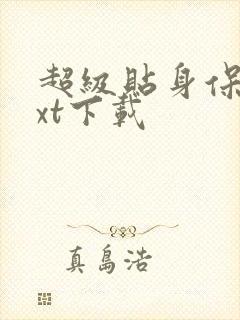 超級貼身保
xt下載
真島浩